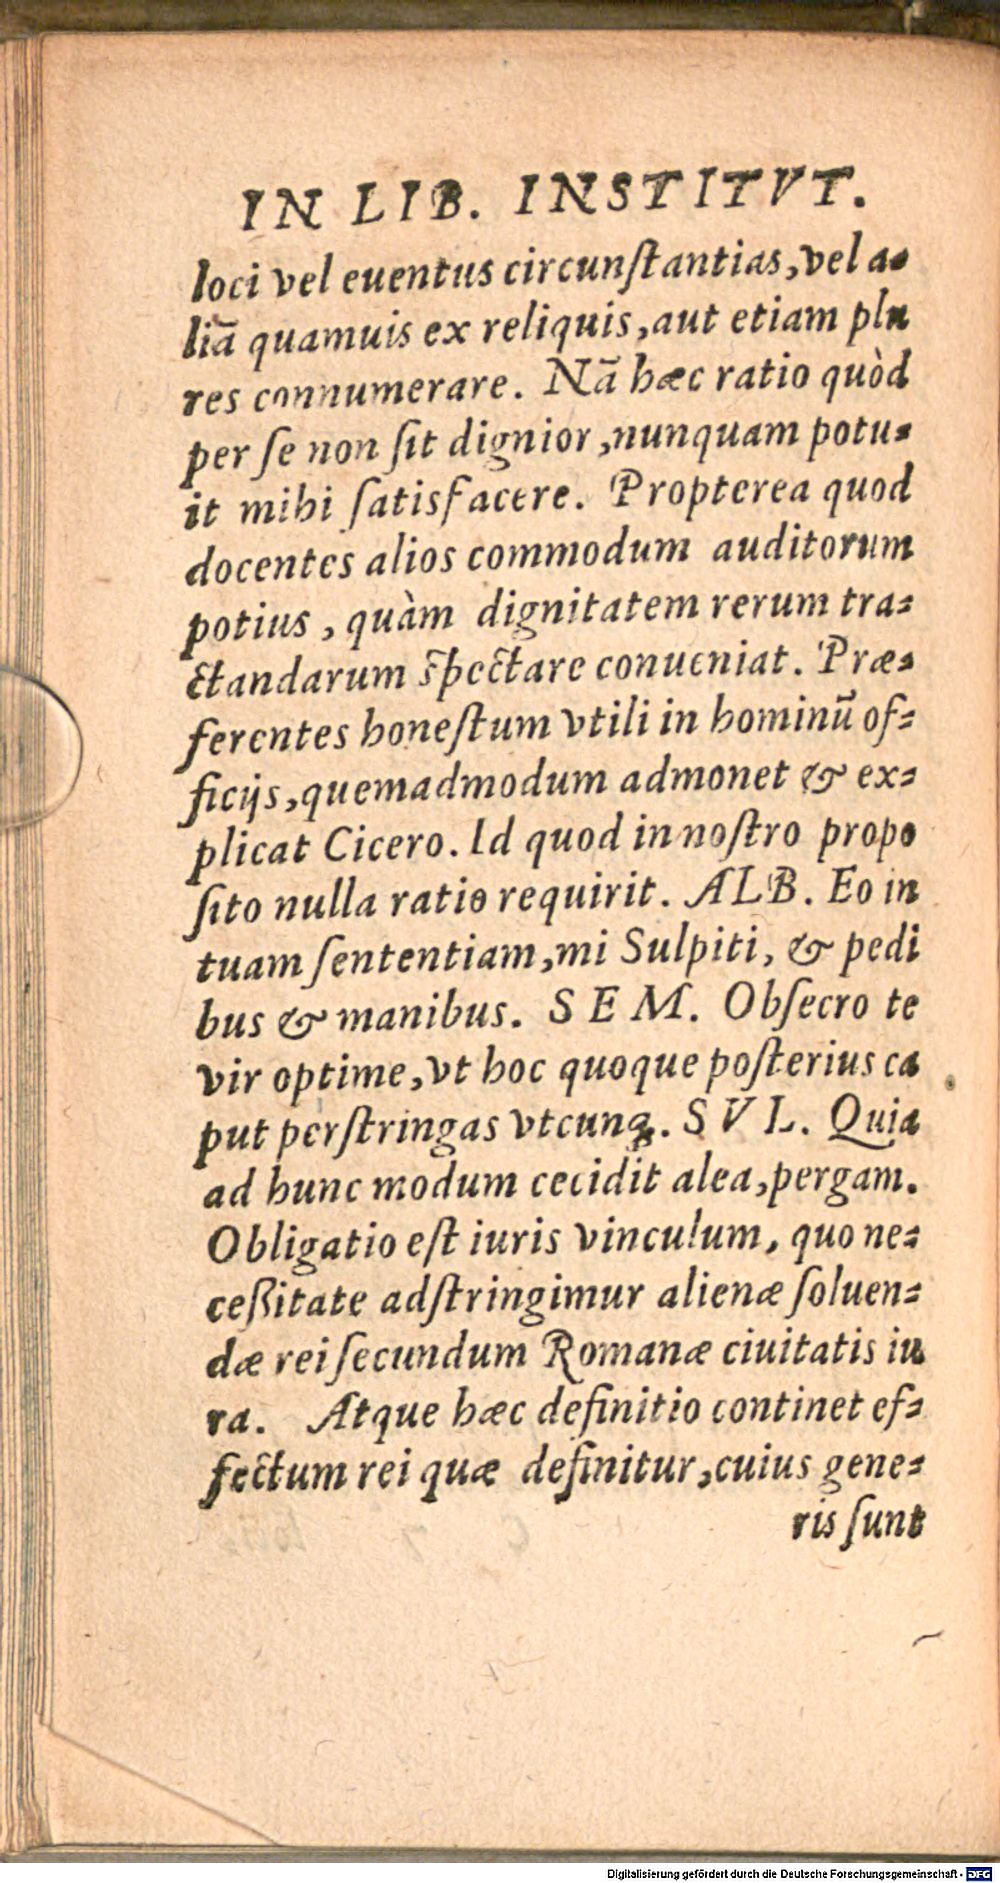 IN LIB. INSTITVT.
loci vel euentus circunſtantias,vel a-
liā quamuis ex reliquis,aut etiam plu
res connumerare. Nā hæc ratio quòd
per ſe non ſit dignior,nunquam potu-
it mihi ſatisfacere. Propterea quod
docentes alios commodum auditorum
potius, quàm dignitatem rerum tra-
ctandarum ſpectare conueniat. Præ-
ferentes honeſtum vtili in hominū of-
ficijs,quemadmodum admonet & ex-
plicat Cicero. Id quod in noſtro propo
ſito nulla ratio requirit. ALB. Eo in
tuam ſententiam,mi Sulpiti, & pedi
bus & manibus. SEM. Obſecro te
vir optime,vt hoc quoque poſterius ca
put perſtringas vtcunq;. SVL. Quia
ad hunc modum cecidit alea,pergam.
Obligatio eſt iuris vinculum, quo ne-
ceßitate adſtringimur alienæ ſoluen-
dæ rei ſecundum Romanæ ciuitatis iu
ra. Atque hæc definitio continet ef-
fectum rei quæ definitur,cuius gene-
ris ſunt
Digitalisierung gefördert durch die Deutsche Forschungsgemeinschaft - DFG